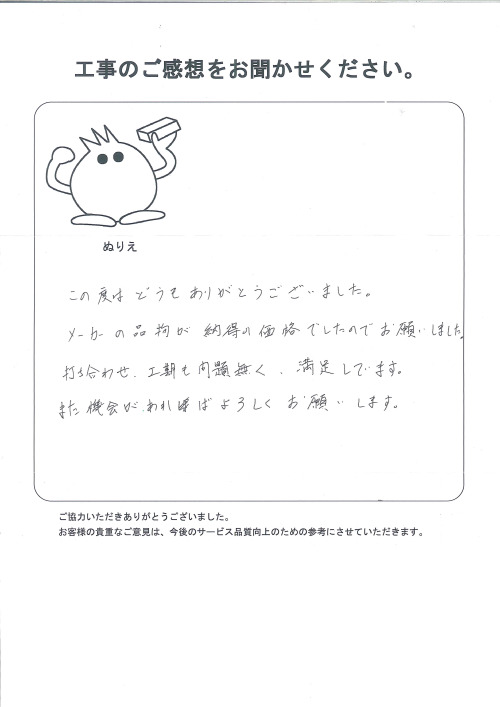 工事のご感想をお聞かせください。
ぬりえ
この度はどうもありがとうございました。
メーカーの品物が納得の価格でしたのでお願いしました
打ち合わせ、工期も問題無く、満足しています。
また機会があればよろしくお願いします。
ご協力いただきありがとうございました。
お客様の貴重なご意見は、今後のサービス品質向上のための参考にさせていただきます。